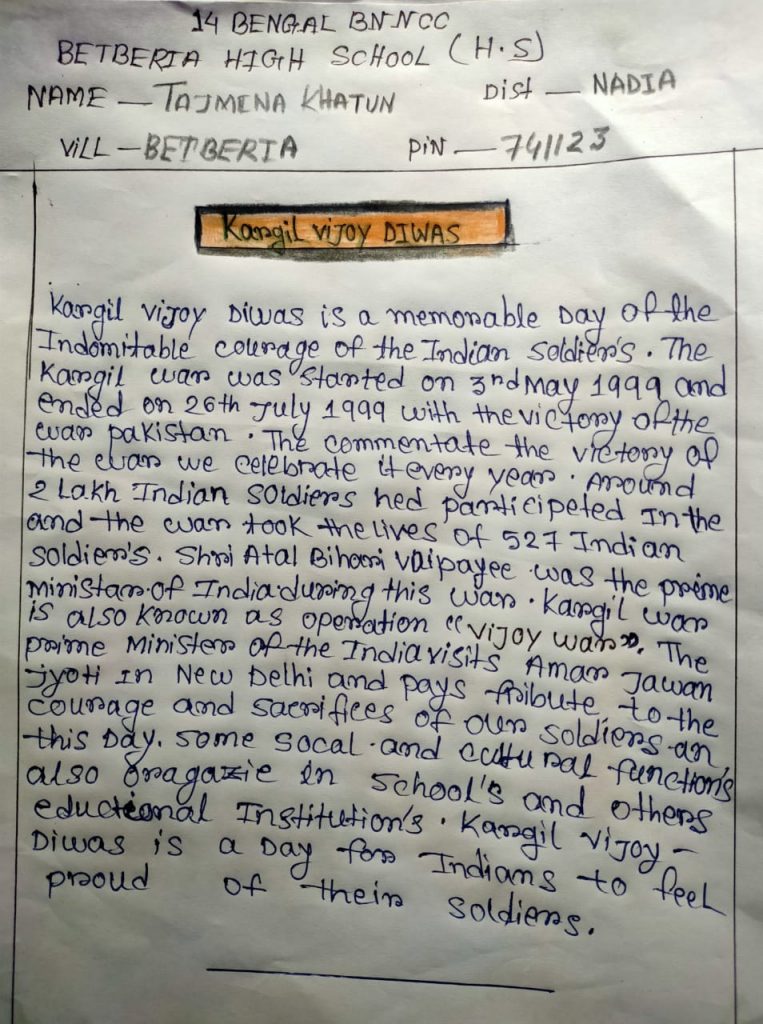 14 BENGAL BN NCC
BETBERIA HIGH SCHOOL (H.S)
NAME — TAJMENA KHATUN Dist — NADIA
VILL — BETBERIA PIN — 741123
Kargil VIJOY DIWAS
Kargil VIJOY DIWAS is a memorable Day of the
Indomitable courage of the Indian Soldier's. The
Kargil war was started on 3rd May 1999 and
ended on 26th July 1999 with the victory of the
war pakistan. The commentate the victory of
the war we celebrate it every year. Around
2 Lakh Indian SOldiers hed participeted In the
and the war took the lives of 527 Indian
Soldier's. Shri Atal Bihari Vaipayee was the preime
Ministar of India during this war. Kargil war
is also Known as operation "VIJOY War". The
prime Minister of the India visits Amar Jawan
Jyoti In New Delhi and pays tribute to the
courage and sacrifices of our soldiers an
this Day. Some Socal and cultural function's
also Oragazie in School's and others
eductional Institution's. Kargil VIJOY –
DIWAS is a Day for Indians to feel
proud of their Soldiers.